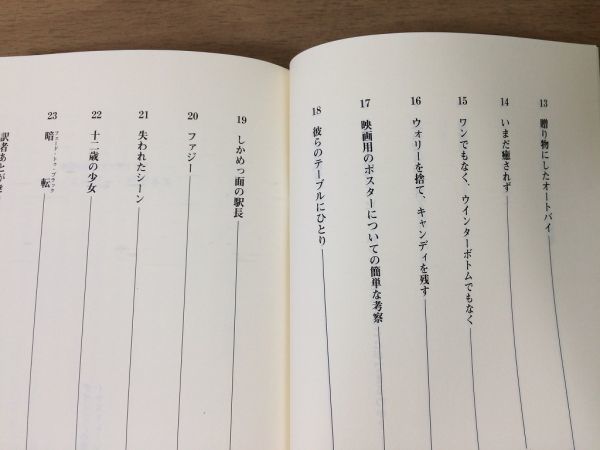 13 贈り物にしたオートバイ
14 いまだ癒されず
15 ワンでもなく、ウインターボトムでもなく
16 ウォリーを捨て、キャンディを残す
17 映画用のポスターについての簡単な考察
18 彼らのテーブルにひとり
19 しかめっ面の駅長
20 ファジー
21 失われたシーン
22 十二歳の少女
23 暗転
フェード・トゥ・ブラック
訳者あとがき